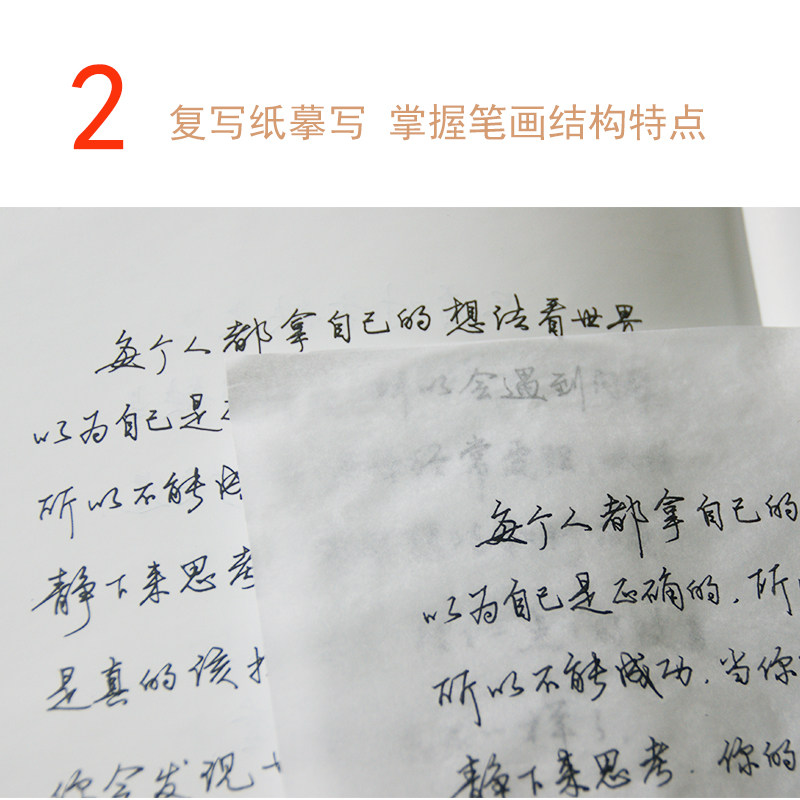 2
复写纸摹写 掌握笔画结构特点
每个人都拿自己的想法看世界
以为自己是
所以不能成
静下来思考
是真的该
你会发现
所以会遇到
经常受
每个人都拿自己的
以为自己是正确的，所
所以不能成功，当你
静下来思考，你的